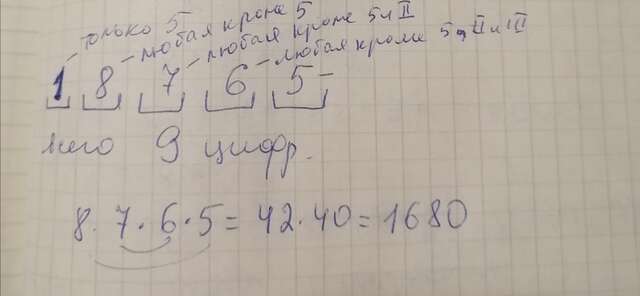 только 5
любая кроме 5
любая кроме 5 и II
любая кроме 5, II и III
1 8 7 6 5 -
всего 9 цифр.
8 . 7 . 6 . 5 = 42 . 40 = 1680